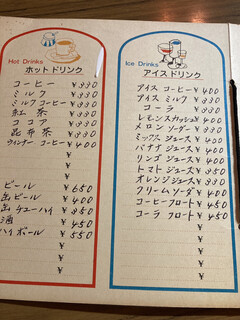 Hot Drinks
ホットドリンク
コーヒー ￥330
ミルク ￥330
ミルクコーヒー ￥330
紅茶 ￥330
ココア ￥330
昆布茶 ￥330
ウインナーコーヒー ￥400
￥
￥
￥
ビール ￥650
缶ビール ￥400
缶チューハイ ￥350
酒 ￥450
ハイボール ￥550
￥
￥
￥
Ice Drinks
アイスドリンク
アイスコーヒー ￥400
アイスミルク ￥330
コーラ ￥330
レモンスカッシュ ￥400
メロンソーダー ￥330
ミックスジュース ￥400
バナナジュース ￥400
リンゴジュース ￥400
トマトジュース ￥350
オレンジジュース ￥330
クリームソーダ ￥400
コーヒーフロート ￥450
コーラフロート ￥450
￥
￥
￥
￥